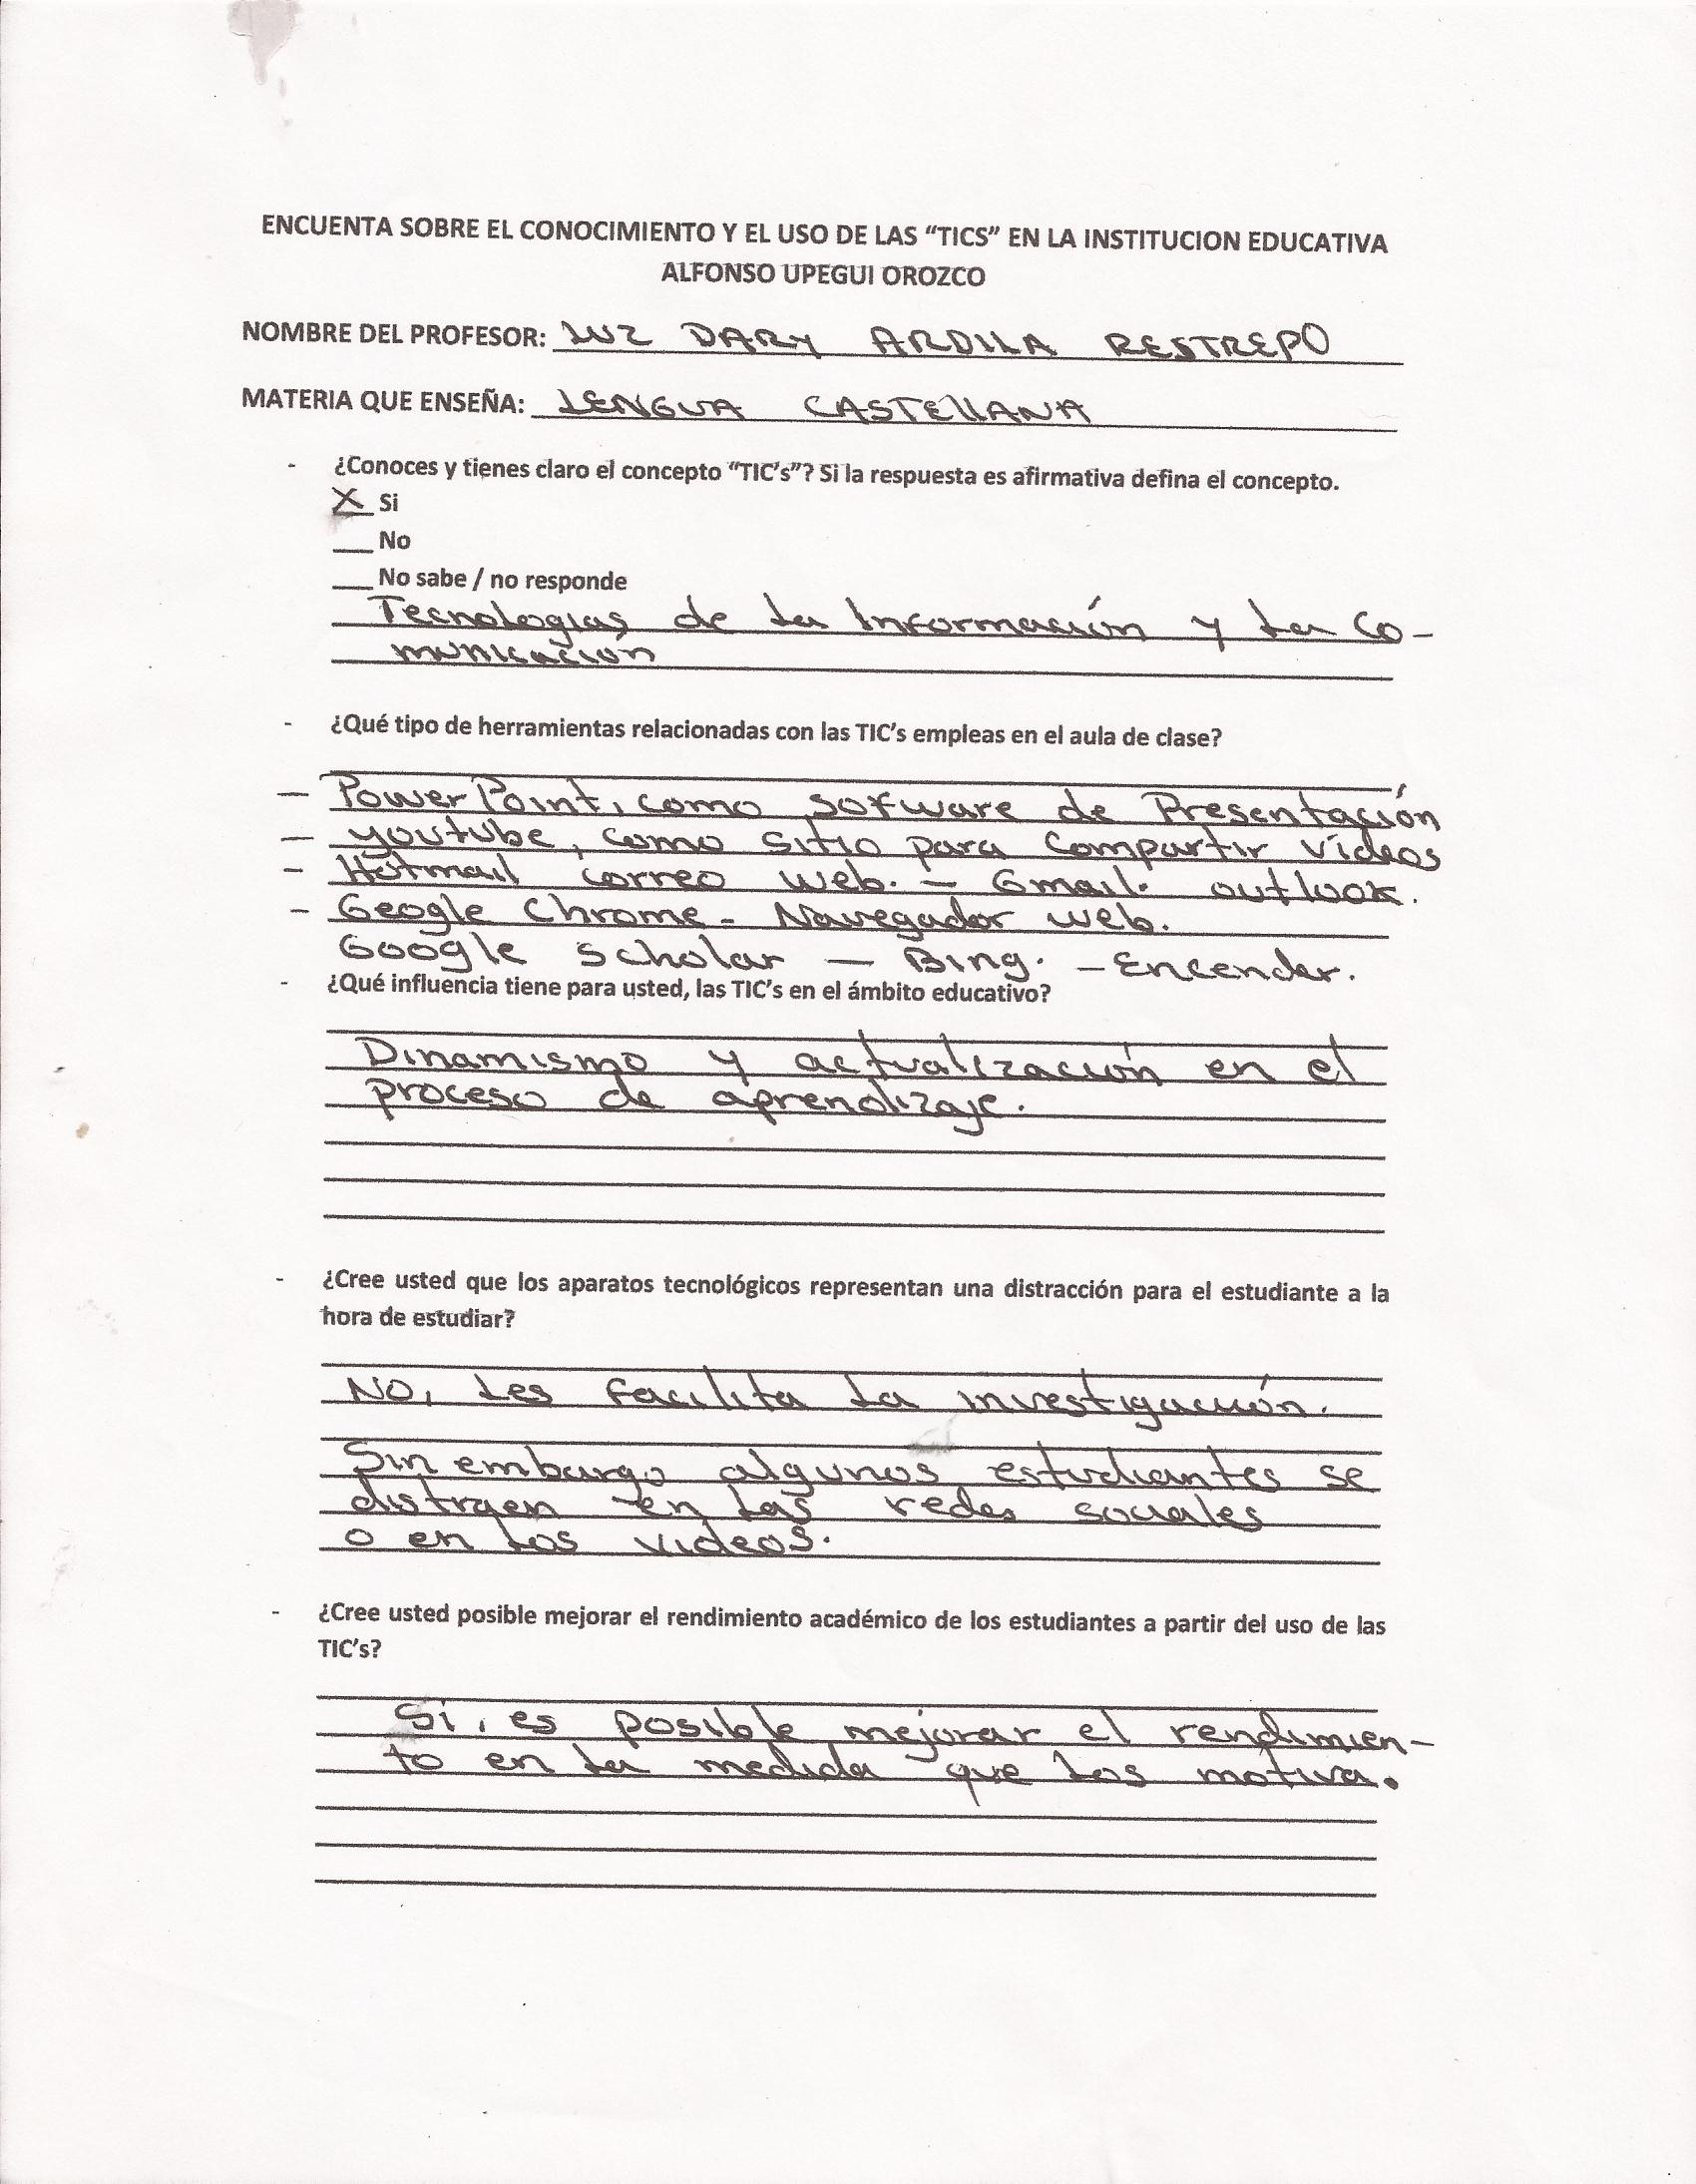 ENCUENTA SOBRE EL CONOCIMIENTO Y EL USO DE LAS “TICS” EN LA INSTITUCION EDUCATIVA
ALFONSO UPEGUI OROZCO
NOMBRE DEL PROFESOR: LUZ DARY ARDILA RESTREPO
MATERIA QUE ENSEÑA: LENGUA CASTELLANA
- ¿Conoces y tienes claro el concepto “TIC’s”? Si la respuesta es afirmativa defina el concepto.
X Si
___ No
___ No sabe / no responde
Tecnologias de la Información y la Co-
municación
- ¿Qué tipo de herramientas relacionadas con las TIC’s empleas en el aula de clase?
- PowerPoint, como sofware de Presentación
- youtube, como sitio para compartir vídeos
- Hotmail correo web. - Gmail. outlook.
- Geogle Chrome - Navegador web.
Google scholar - Bing. - Encender.
- ¿Qué influencia tiene para usted, las TIC’s en el ámbito educativo?
Dinamismo y actualización en el
proceso de aprendizaje.
- ¿Cree usted que los aparatos tecnológicos representan una distracción para el estudiante a la
hora de estudiar?
No, les facilita la investigación.
Sin embargo algunos estudiantes se
distraen en las redes sociales
o en los videos.
- ¿Cree usted posible mejorar el rendimiento académico de los estudiantes a partir del uso de las
TIC’s?
Si, es posible mejorar el rendimien-
to en la medida que los motiva.